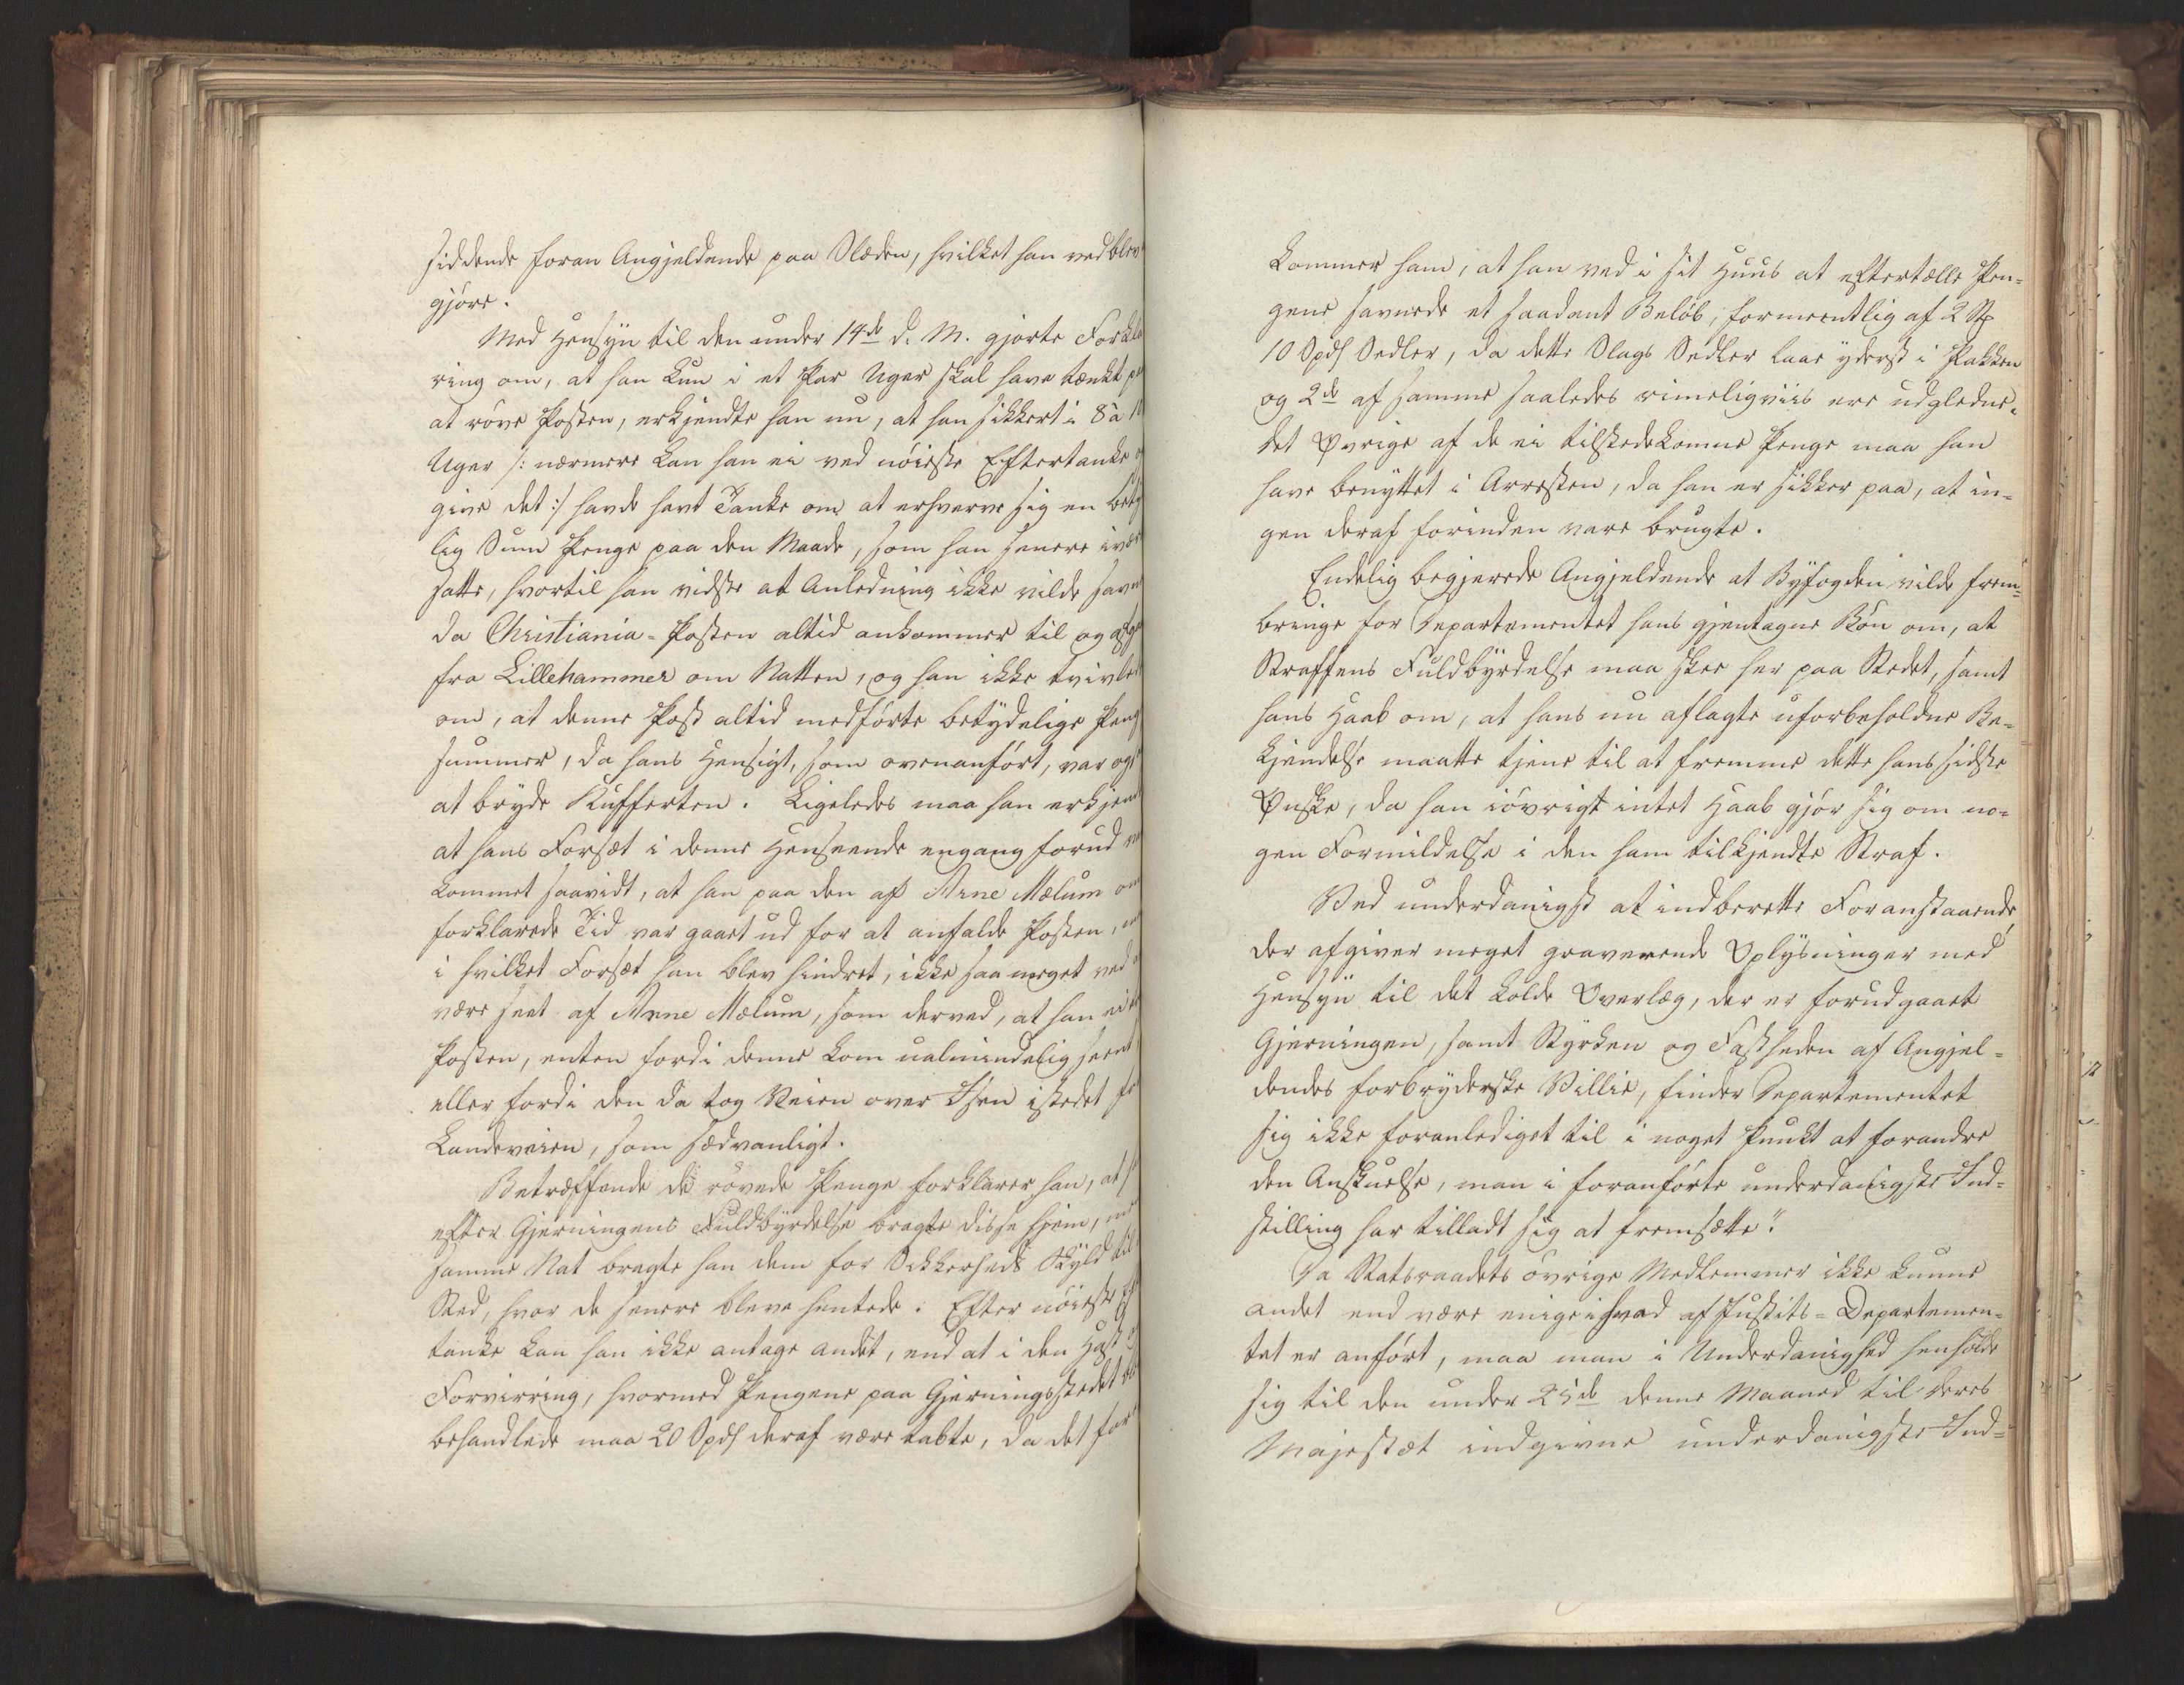 siddende foran Angjeldende paa Slæden, hvilket han vedblev
gjøre.
Med Hensyn til den under 14de d. M. gjorte Forkla
ring om, at han kun i et Par Uger skal have tænkt pa
at røve Posten, erkjendte han nu, at han sikkert i 8 à 10
Uger /: nærmere kan han ei ved nøieste Eftertanke
give det :/ havde havt Tanke om at erhverve sig en bety
lig Sum Penge paa den Maade, som han senere ivær
satte, hvortil han vidste at Anledning ikke vilde savne
da Christiania-Posten altid ankommer til og afgaa
fra Lillehammer om Natten, og han ikke tvivlede
om, at denne Post altid medførte betydelige Peng
summer, da hans Hensigt, som ovenanført, var ogs
at bryde Kufferten. Ligeledes maa han erkjend
at hans Forsæt i denne Henseende engang forud va
kommet saavidt, at han paa den af Arne Mælum om
forklarede Tid var gaaet ud for at anfalde Posten,
i hvilket Forsæt han blev hindret, ikke saa meget ved
være seet af Arne Mælum, som derved, at han ei
Posten, enten fordi denne kom ualmindelig seent
eller fordi den da tog Veien over Isen istedet for
Landeveien, som sædvanligt.
Betræffende de røvede Penge forklarer han, at
efter Gjerningens Fuldbyrdelse bragte disse hjem, 
samme Nat bragte han dem for Sikkerheds Skyld til
Sted, hvor de senere bleve hentede. Efter nøieste
tanke kan han ikke antage andet, end at i den Hast
Forvirring, hvormed Pengene paa Gjerningsstedet
behandlede maa 20 Spds deraf være tabte, da det fore
kommer ham, at han ved i sit Huus at eftertælle Pen-
gene savnede et saadant Beløb, formeentlig af 2 St
10 Spds Sedler, da dette Slags Sedler laae yderst i Pakken
og 2de af samme saaledes rimeligviis ere udgledne.
Det Øvrige af de ei tilstedekomne Penge maa han
have benyttet i Arresten, da han er sikker paa, at in-
gen deraf forinden vare brugte.
Endelig begjerede Angjeldende at Byfogden vilde frem-
bringe for Departementet hans gjentagne Bøn om, at
Straffens Fuldbyrdelse maa skee her paa Stedet, samt
hans Haab om, at hans nu aflagte uforbeholdne Be-
kjendelse maatte tjene til at fremme dette hans sidste
Ønske, da han iøvrigt intet Haab gjør sig om no-
gen Formildelse i den ham tilkjendte Straf.
Ved underdanigst at indberette Foranstaaende,
der afgiver meget graverende Oplysninger med
Hensyn til det kolde Overlæg, der er forudgaaet
Gjerningen, samt Styrken og Fastheden af Angjel-
dendes forbryderske Villie, finder Departementet
sig ikke foranlediget til i noget Punkt at forandre
den Anskuelse, man i foranførte underdanigste Ind-
stilling har tilladt sig at fremsætte."
Da Statsraadets øvrige Medlemmer ikke kunne
andet end være enige i hvad af Justits-Departemen-
tet er anført, maa man i Underdanighed henholde
sig til den under 25de denne Maaned til Deres
Majestæt indgivne underdanigste Ind-